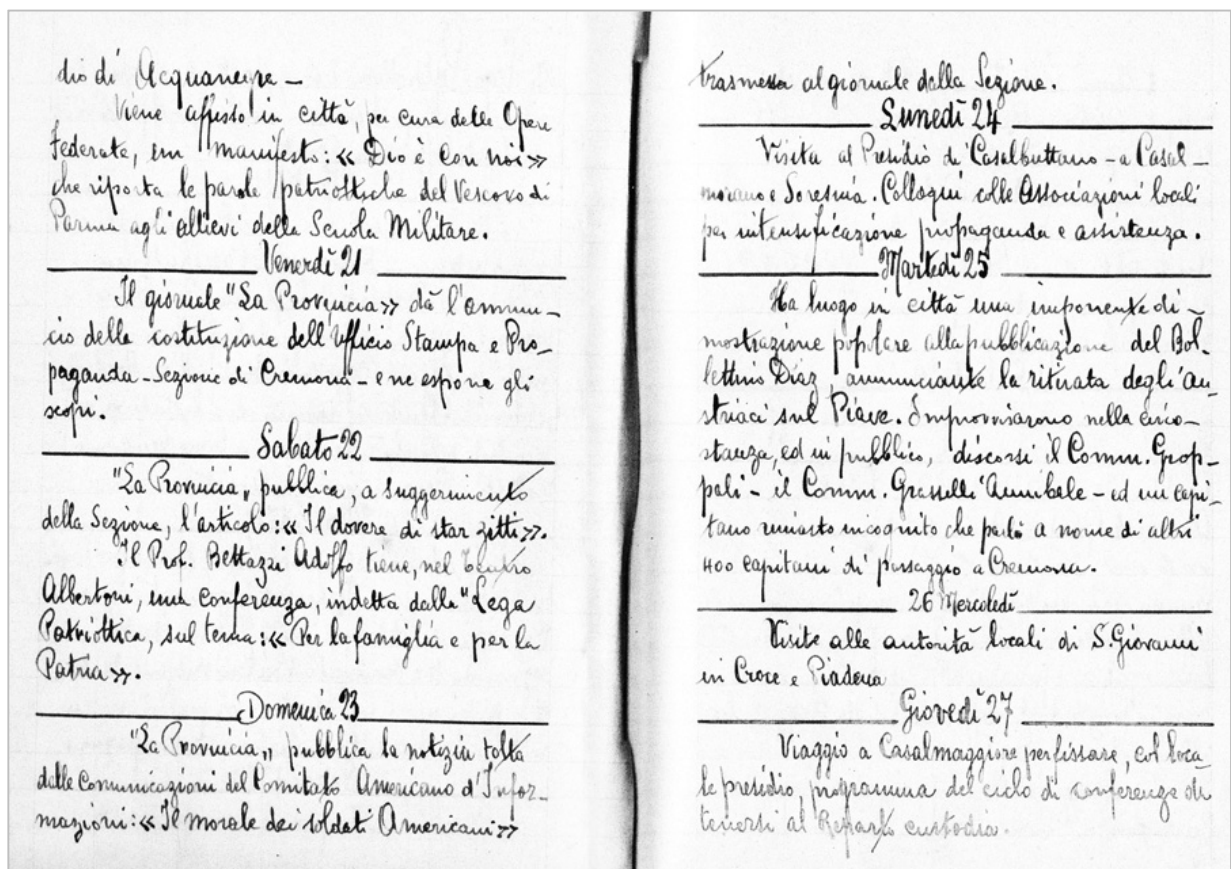 dio di Acquanegra –
Viene affisso in città, per cura delle Opere
Federate, un manifesto: « Dio è con noi »
che riporta le parole patriottiche del Vescovo di
Parma agli allievi della Scuola Militare.
Venerdì 21
Il giornale "La Provincia» dà l'annun-
cio della costituzione dell'Ufficio Stampa e Pro-
paganda - Sezione di Cremona - e ne espone gli
scopi.
Sabato 22
"La Provincia„ pubblica, a suggerimento
della Sezione, l'articolo: « Il dovere di star zitti ».
Il Prof. Bettazzi Adolfo tiene, nel Teatro
Albertoni, una conferenza, indetta dalla "Lega
Patriottica, sul tema: « Per la famiglia e per la
Patria ».
Domenica 23
"La Provincia„ pubblica la notizia tolta
dalle Comunicazioni del Comitato Americano d'Infor-
mazioni: « Il morale dei soldati Americani »
trasmessa al giornale dalla Sezione.
Lunedì 24
Visita al Presidio di Casalbuttano - a Casal-
morano e Soresina. Colloqui colle Associazioni locali
per intensificazione propaganda e assistenza.
Martedì 25
Ha luogo in città una imponente di-
mostrazione popolare alla pubblicazione del Bol-
lettino Diaz, annunciante la ritirata degli au-
striaci sul Piave. Improvvisarono nella circo-
stanza, ed in pubblico, discorsi il Comm. Grop-
pali - il Comm. Grasselli Annibale - ed un capi-
tano rimasto incognito che parlò a nome di altri
400 capitani di passaggio a Cremona.
26 Mercoledì
Visite alle autorità locali di S. Giovanni
in Croce e Piadena
Giovedì 27
Viaggio a Casalmaggiore per fissare, col loca-
le presidio, programma del ciclo di conferenze da
tenersi al Reparto custodia.